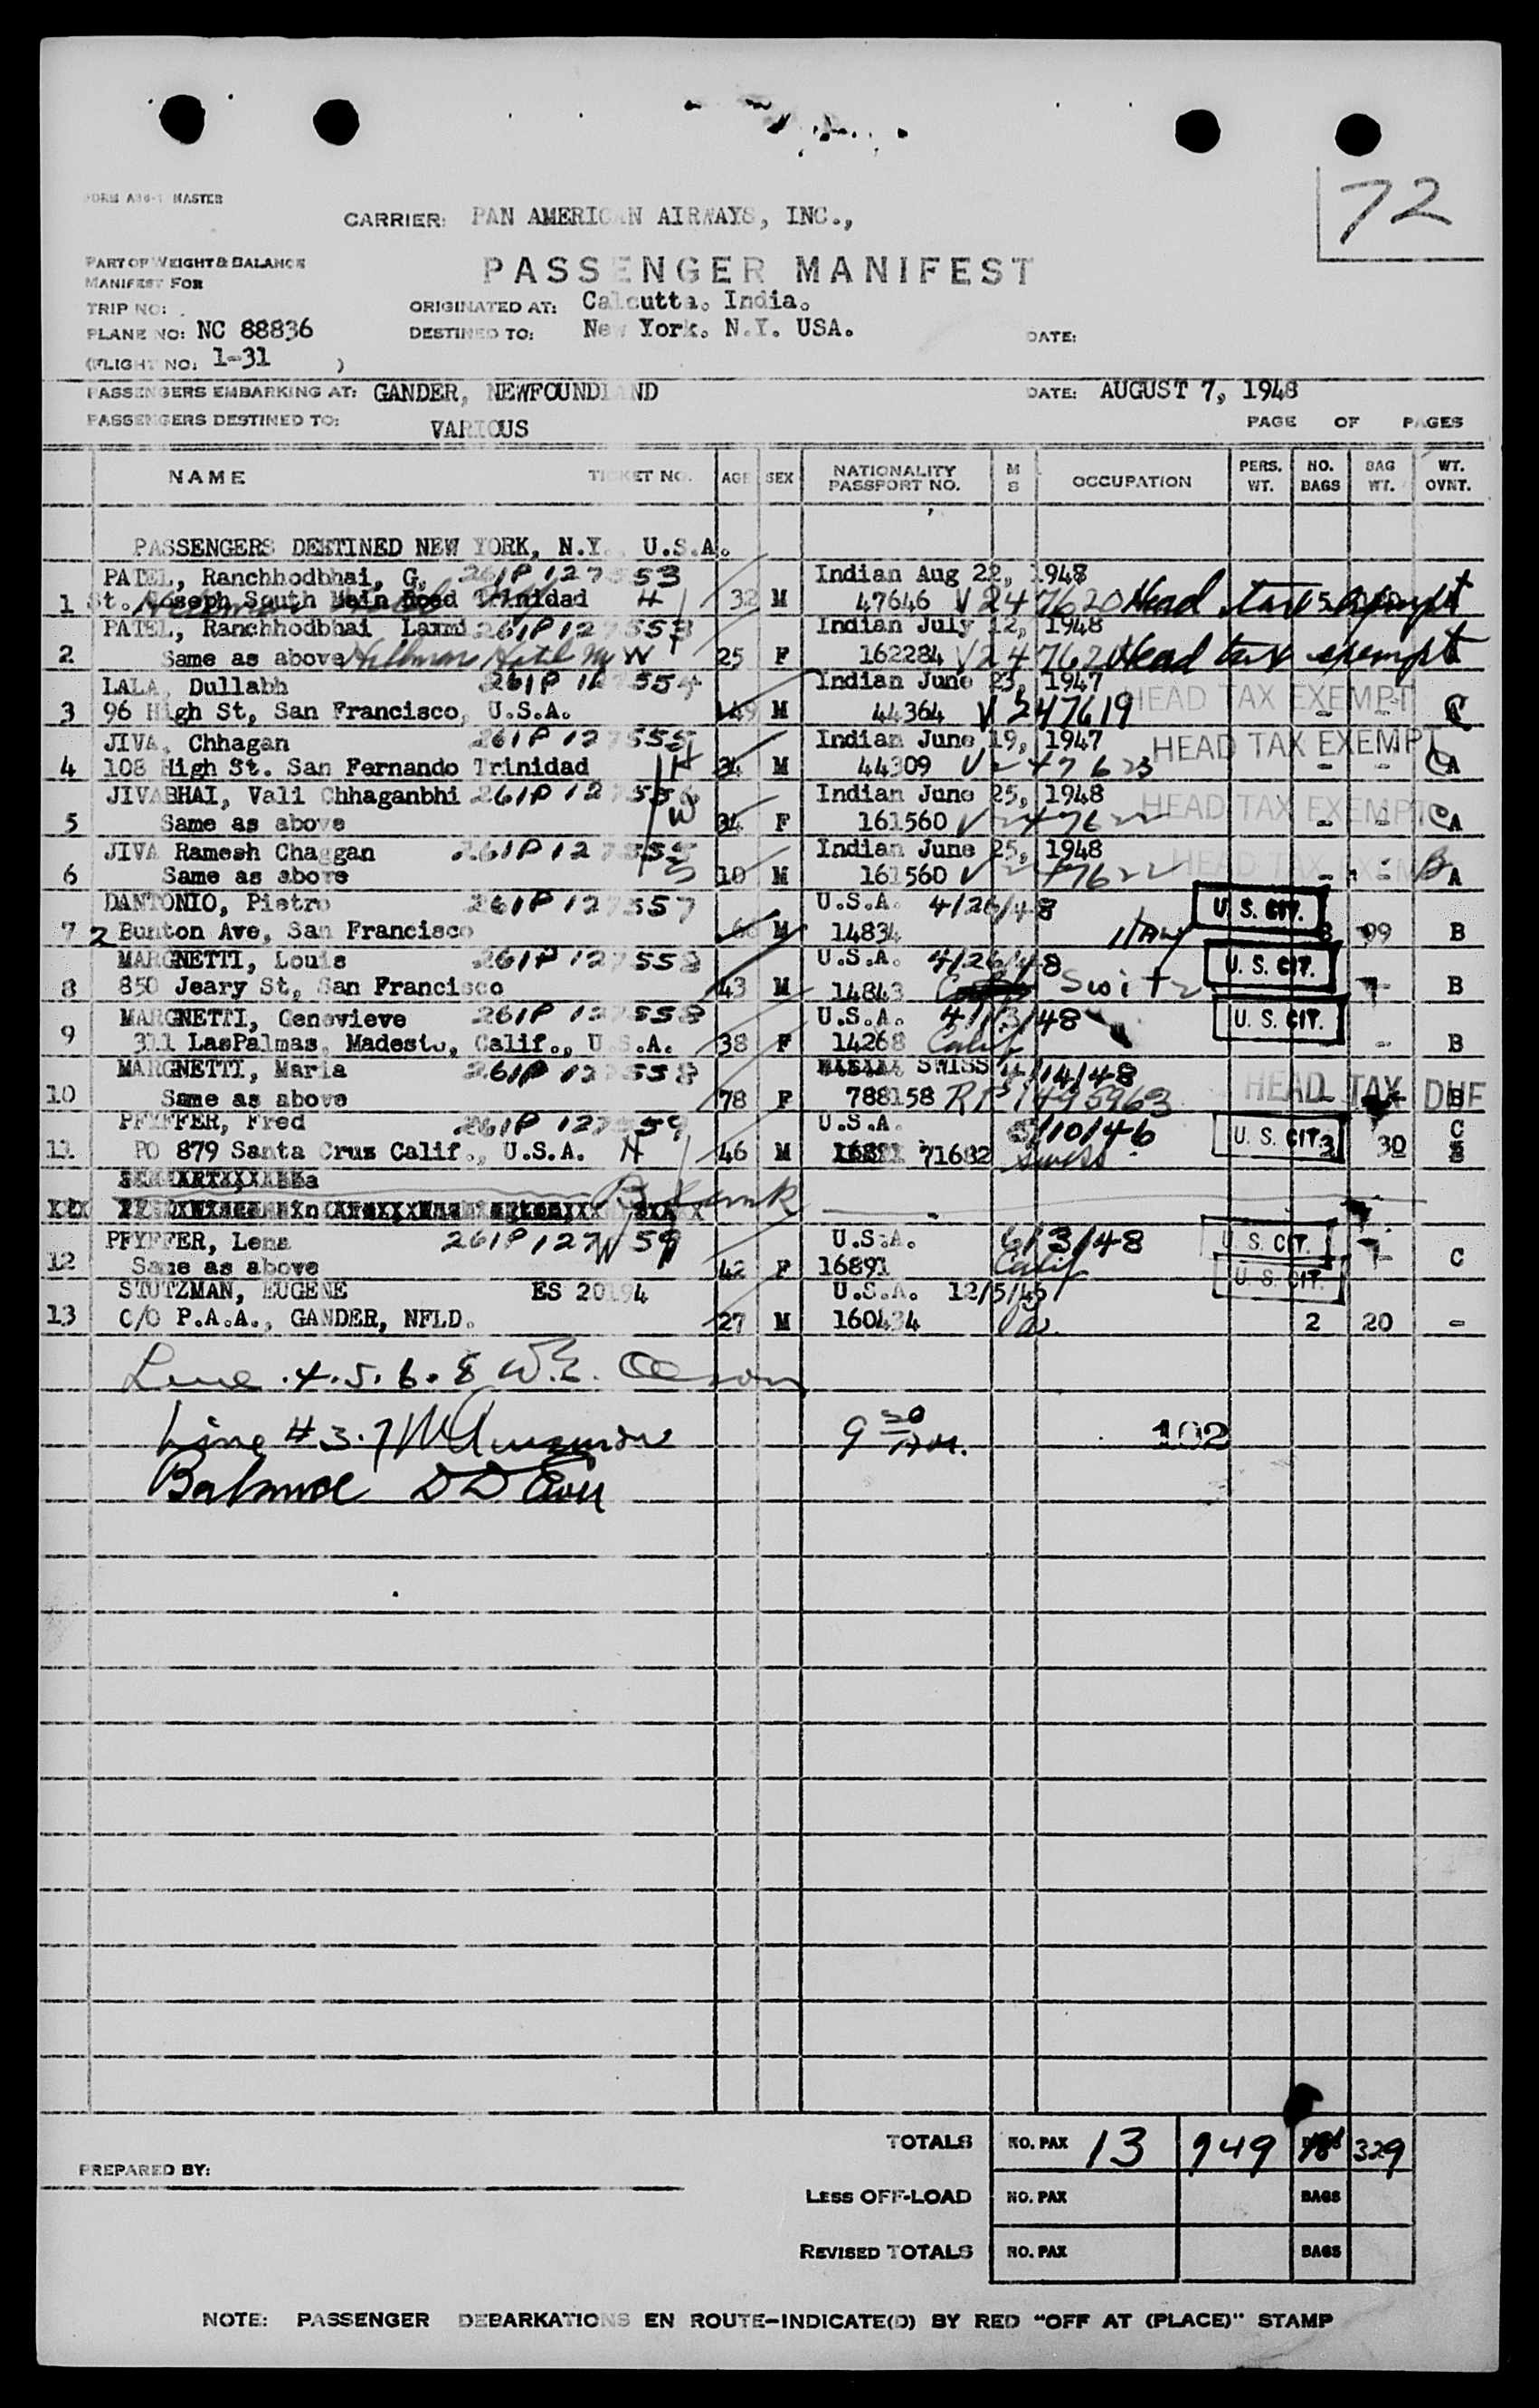 FORM A36-1 MASTER
72
CARRIER: PAN AMERICAN AIRWAYS, INC.,
PART OF WEIGHT & BALANCE
PASSENGER MANIFEST
MANIFEST FOR
TRIP NO:
ORIGINATED AT: Calcutta. India.
PLANE NO: NC 88836
DESTINED TO: New York. N.Y. USA.
DATE:
(FLIGHT NO: 1-31 )
PASSENGERS EMBARKING AT: GANDER, NEWFOUNDLAND DATE: AUGUST 7, 1948
PASSENGERS DESTINED TO: VARIOUS PAGE OF PAGES
NAME TICKET NO. AGE SEX NATIONALITY PASSPORT NO. M S OCCUPATION PERS. WT. NO. BAGS BAG WT. WT. OVNT.
PASSENGERS DESTINED NEW YORK, N.Y., U.S.A.
PATEL, Ranchhodbhai, G, 261P127553 Indian Aug 22, 1948
1 St. Joseph South Main Road Trinidad H 32 M 47646 V247620 Head tax exempt
PATEL, Ranchhodbhai Laxmi 261P127553 Indian July 12, 1948
2 Same as above Hillman Hotel W 25 F 162284 Head tax exempt
LALA, Dullabh 261P127554 Indian June 23, 1947
3 96 High St, San Francisco, U.S.A. 49 M 44364 V247619 HEAD TAX EXEMPT - -
JIVA, Chhagan 261P127555 Indian June 19, 1947
4 108 High St. San Fernando Trinidad H 34 M 44309 V247623 HEAD TAX EXEMPT - - A
JIVABHAI, Vali Chhaganbhi Indian June 25, 1948
5 Same as above W 34 F 161560 V247622 HEAD TAX EXEMPT - - A
JIVA Ramesh Chaggan 261P127555 Indian June 25, 1948
6 Same as above S 10 M 161560 V247622 HEAD TAX EXEMPT - - A
DANTONIO, Pietro 261P127557 U.S.A. 4/26/48 U. S. CIT.
7 2 Bunton Ave, San Francisco M 14834 Italy 99 B
MARGNETTI, Louis 261P127558 U.S.A. 4/26/48 U. S. CIT.
8 850 Jeary St, San Francisco 43 M 14843 Switz - B
MARGNETTI, Genevieve 261P127558 U.S.A. U. S. CIT.
9 311 LasPalmas, Madesto, Calif., U.S.A. 38 F 14268 Calif - B
MARGNETTI, Maria 261P127558 SWISS HEAD TAX DUE
10 Same as above 78 F 788158 B
PFYFFER, Fred 261P127559 U.S.A. U. S. CIT. C
11 PO 879 Santa Cruz Calif., U.S.A. H 46 M 71682 Swiss 3 30
PFYFFER, Lena U.S.A. 6/3/48 U. S. CIT.
12 Same as above 42 F 16891 Calif - C
STUTZMAN, EUGENE ES 20194 U.S.A. U. S. CIT.
13 C/O P.A.A., GANDER, NFLD. 27 M 160434 Pa. 2 20 -
Line 4. 5. 6. 8 W.E.
Line # 3. 7 9 30 AM. 102
Balance D D
TOTALS NO. PAX 13 949 329
PREPARED BY:
LESS OFF-LOAD NO. PAX BAGS
REVISED TOTALS NO. PAX BAGS
NOTE: PASSENGER DEBARKATIONS EN ROUTE-INDICATE(D) BY RED "OFF AT (PLACE)" STAMP